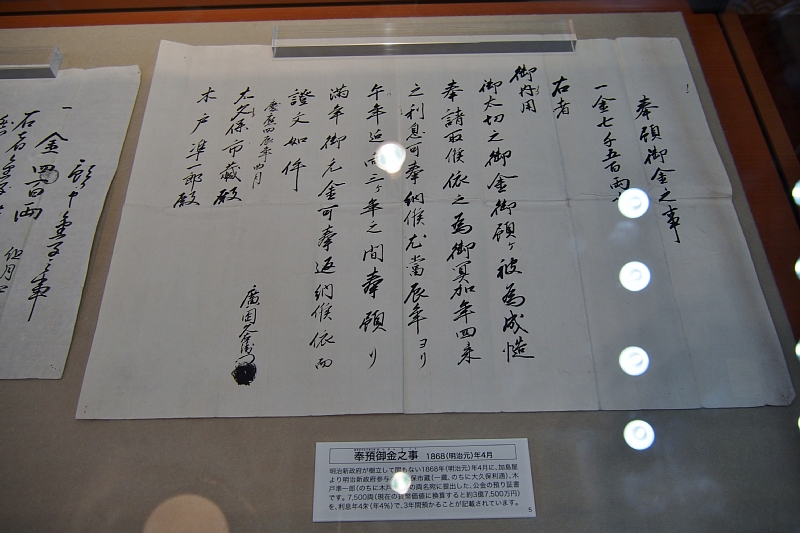 奉預御金之事
一金七千五百両
右者
御内用
御大切之御金御預ヶ被為成慥
奉請取候依之為御冥加年四朱
之利息可奉納候尤當辰年ヨリ
午年迄向三ヶ年之間奉預り
満年御元金可奉返納候依而
證文如件
慶應四辰年四月
廣岡久右衛門
大久保市蔵殿
木戸準一郎殿
一金四百両
奉預御金之事 1868(明治元)年4月
明治新政府が樹立して間もない1868年(明治元)年4月に、加島屋
より明治新政府参与の 保市蔵(一蔵、のちに大久保利通)、木
戸準一郎(のちに木戸 の両名宛に提出した、公金の預り証書
です。7,500両(現在の貨幣価値に換算すると約3億7,500万円)
を、利息年4朱(年4%)で、3年間預かることが記載されています。
5